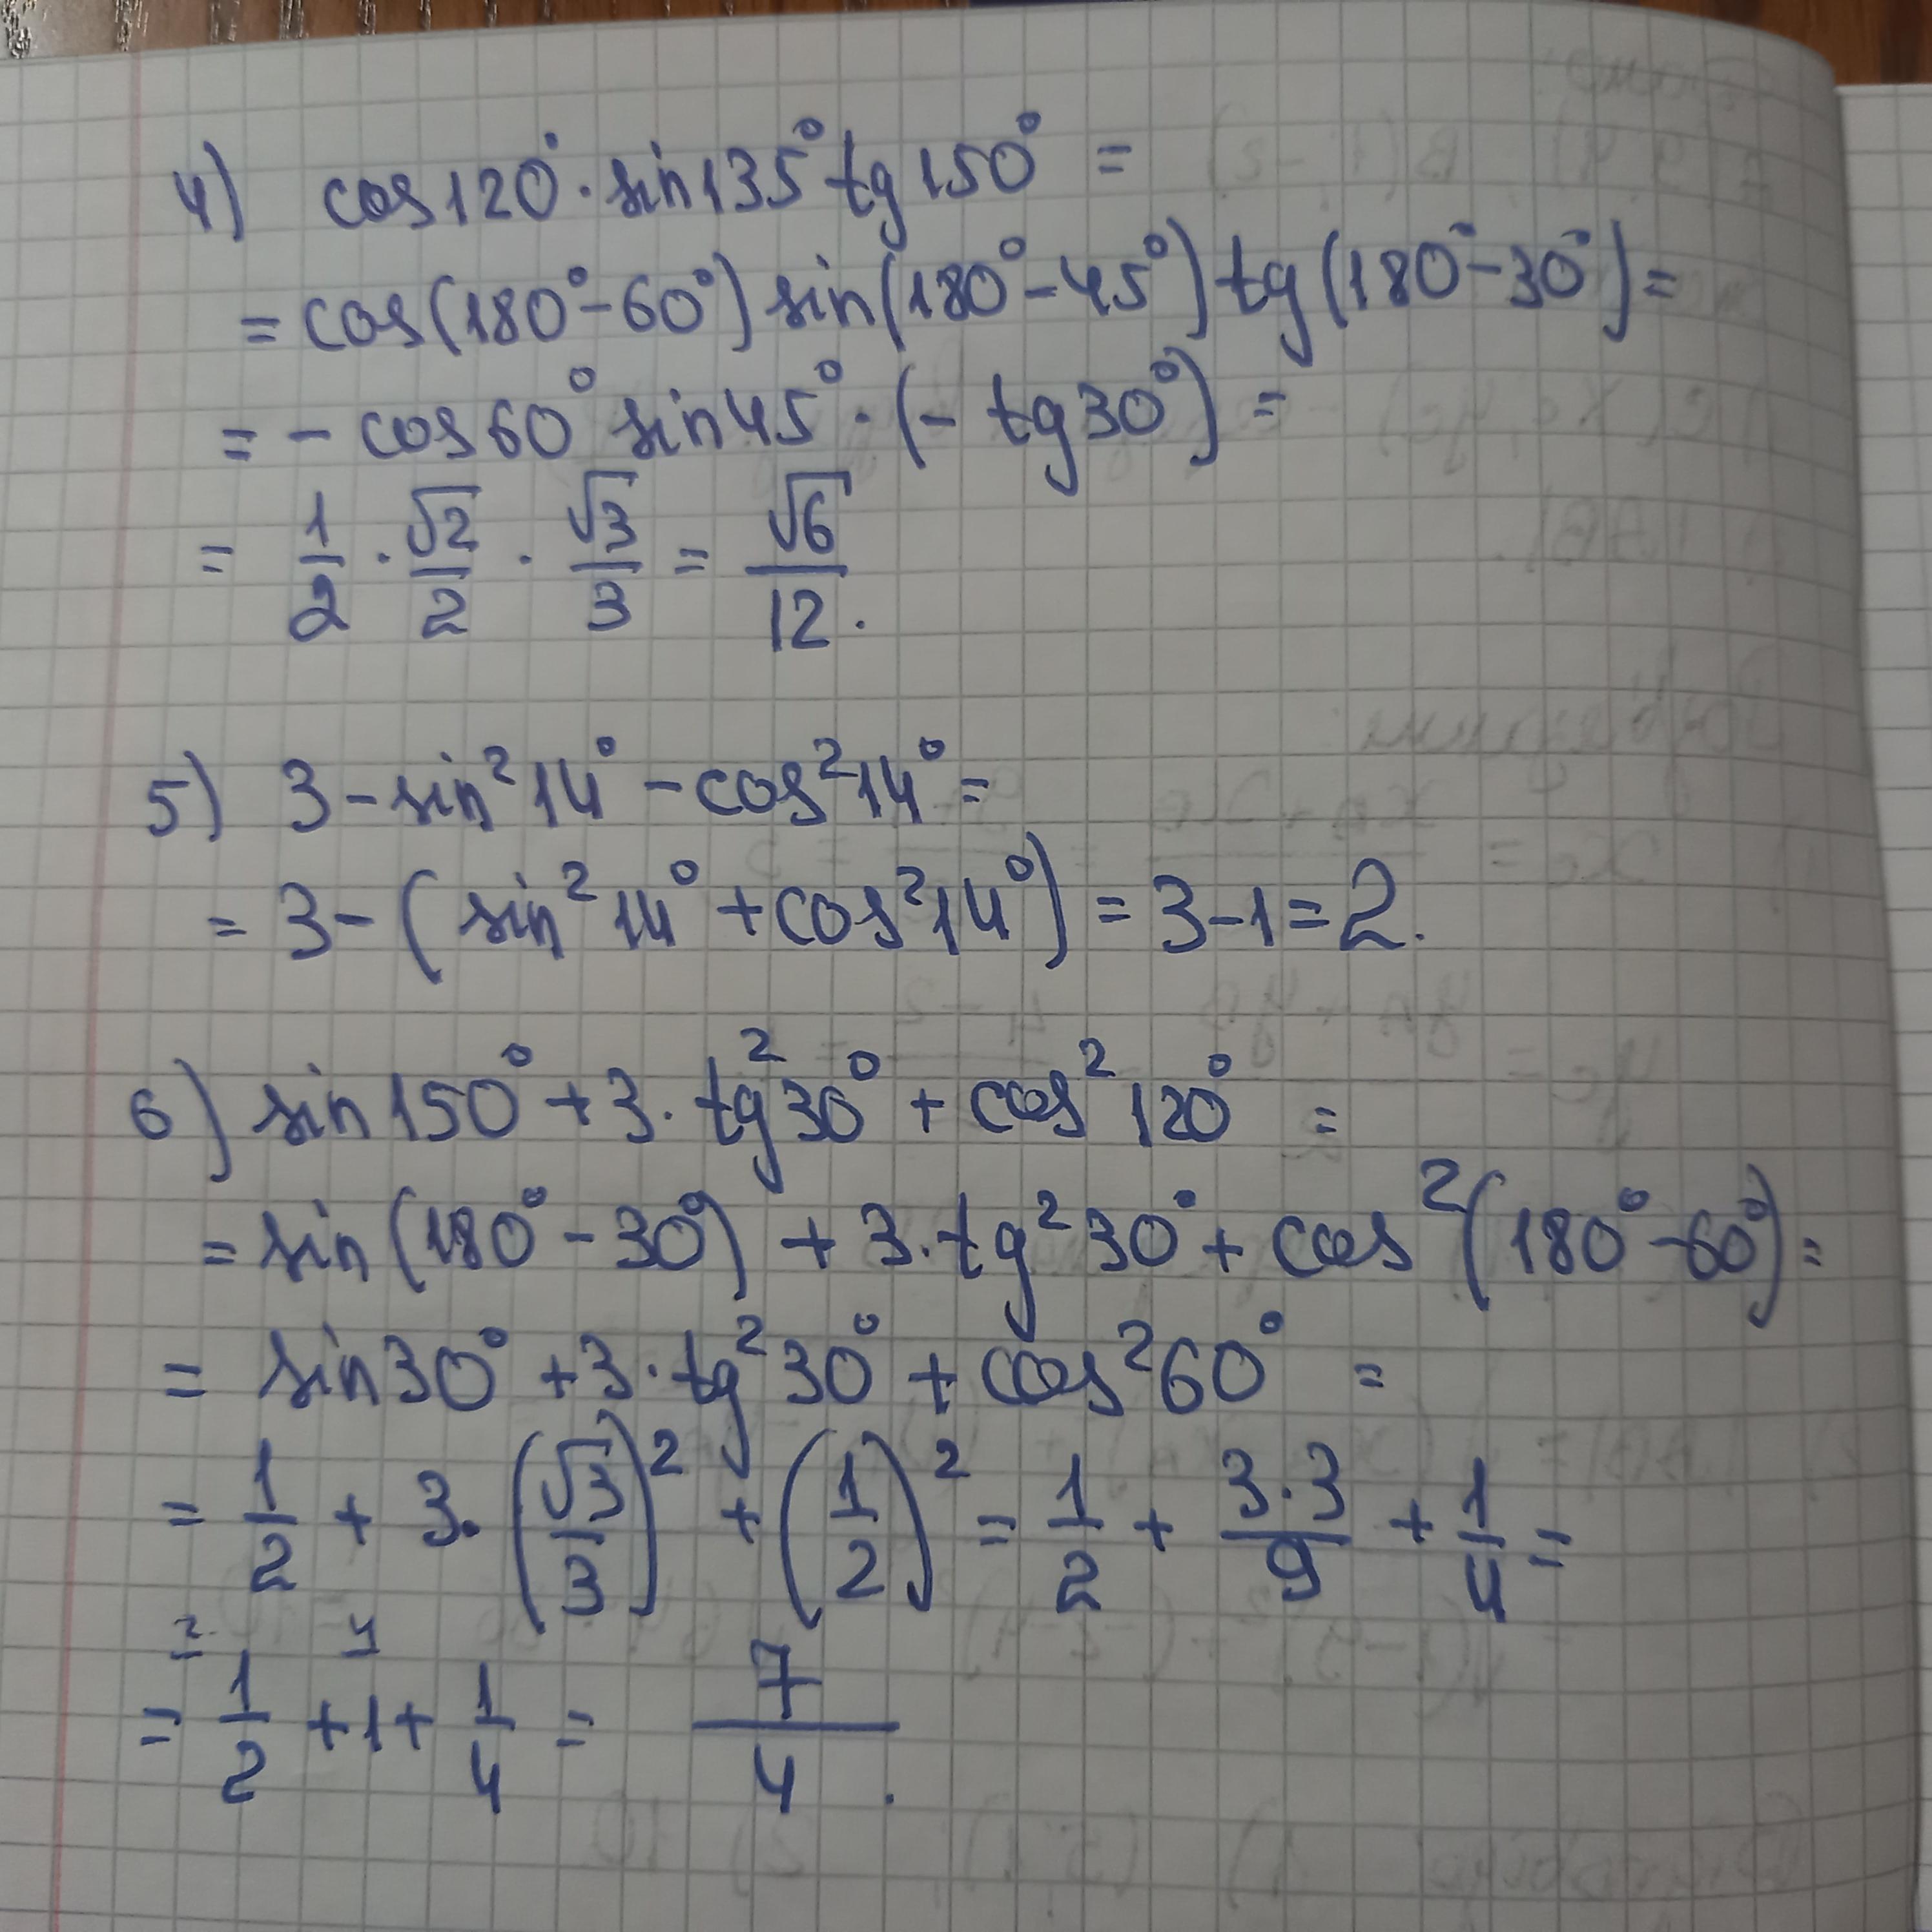 4) cos120° · sin135° tg150° =
= cos(180° - 60°) sin(180° - 45°) tg(180° - 30°) =
= - cos60° sin45° · (- tg30°) =
= 1/2 · √2/2 · √3/3 = √6/12.
5) 3 - sin²14° - cos²14° =
= 3 - (sin²14° + cos²14°) = 3 - 1 = 2.
6) sin150° + 3 · tg²30° + cos²120° =
= sin(180° - 30°) + 3 · tg²30° + cos²(180° - 60°) =
= sin30° + 3 · tg²30° + cos²60° =
= 1/2 + 3 · (√3/3)² + (1/2)² = 1/2 + 3·3/9 + 1/4 =
2 4
= 1/2 + 1 + 1/4 = 7/4.